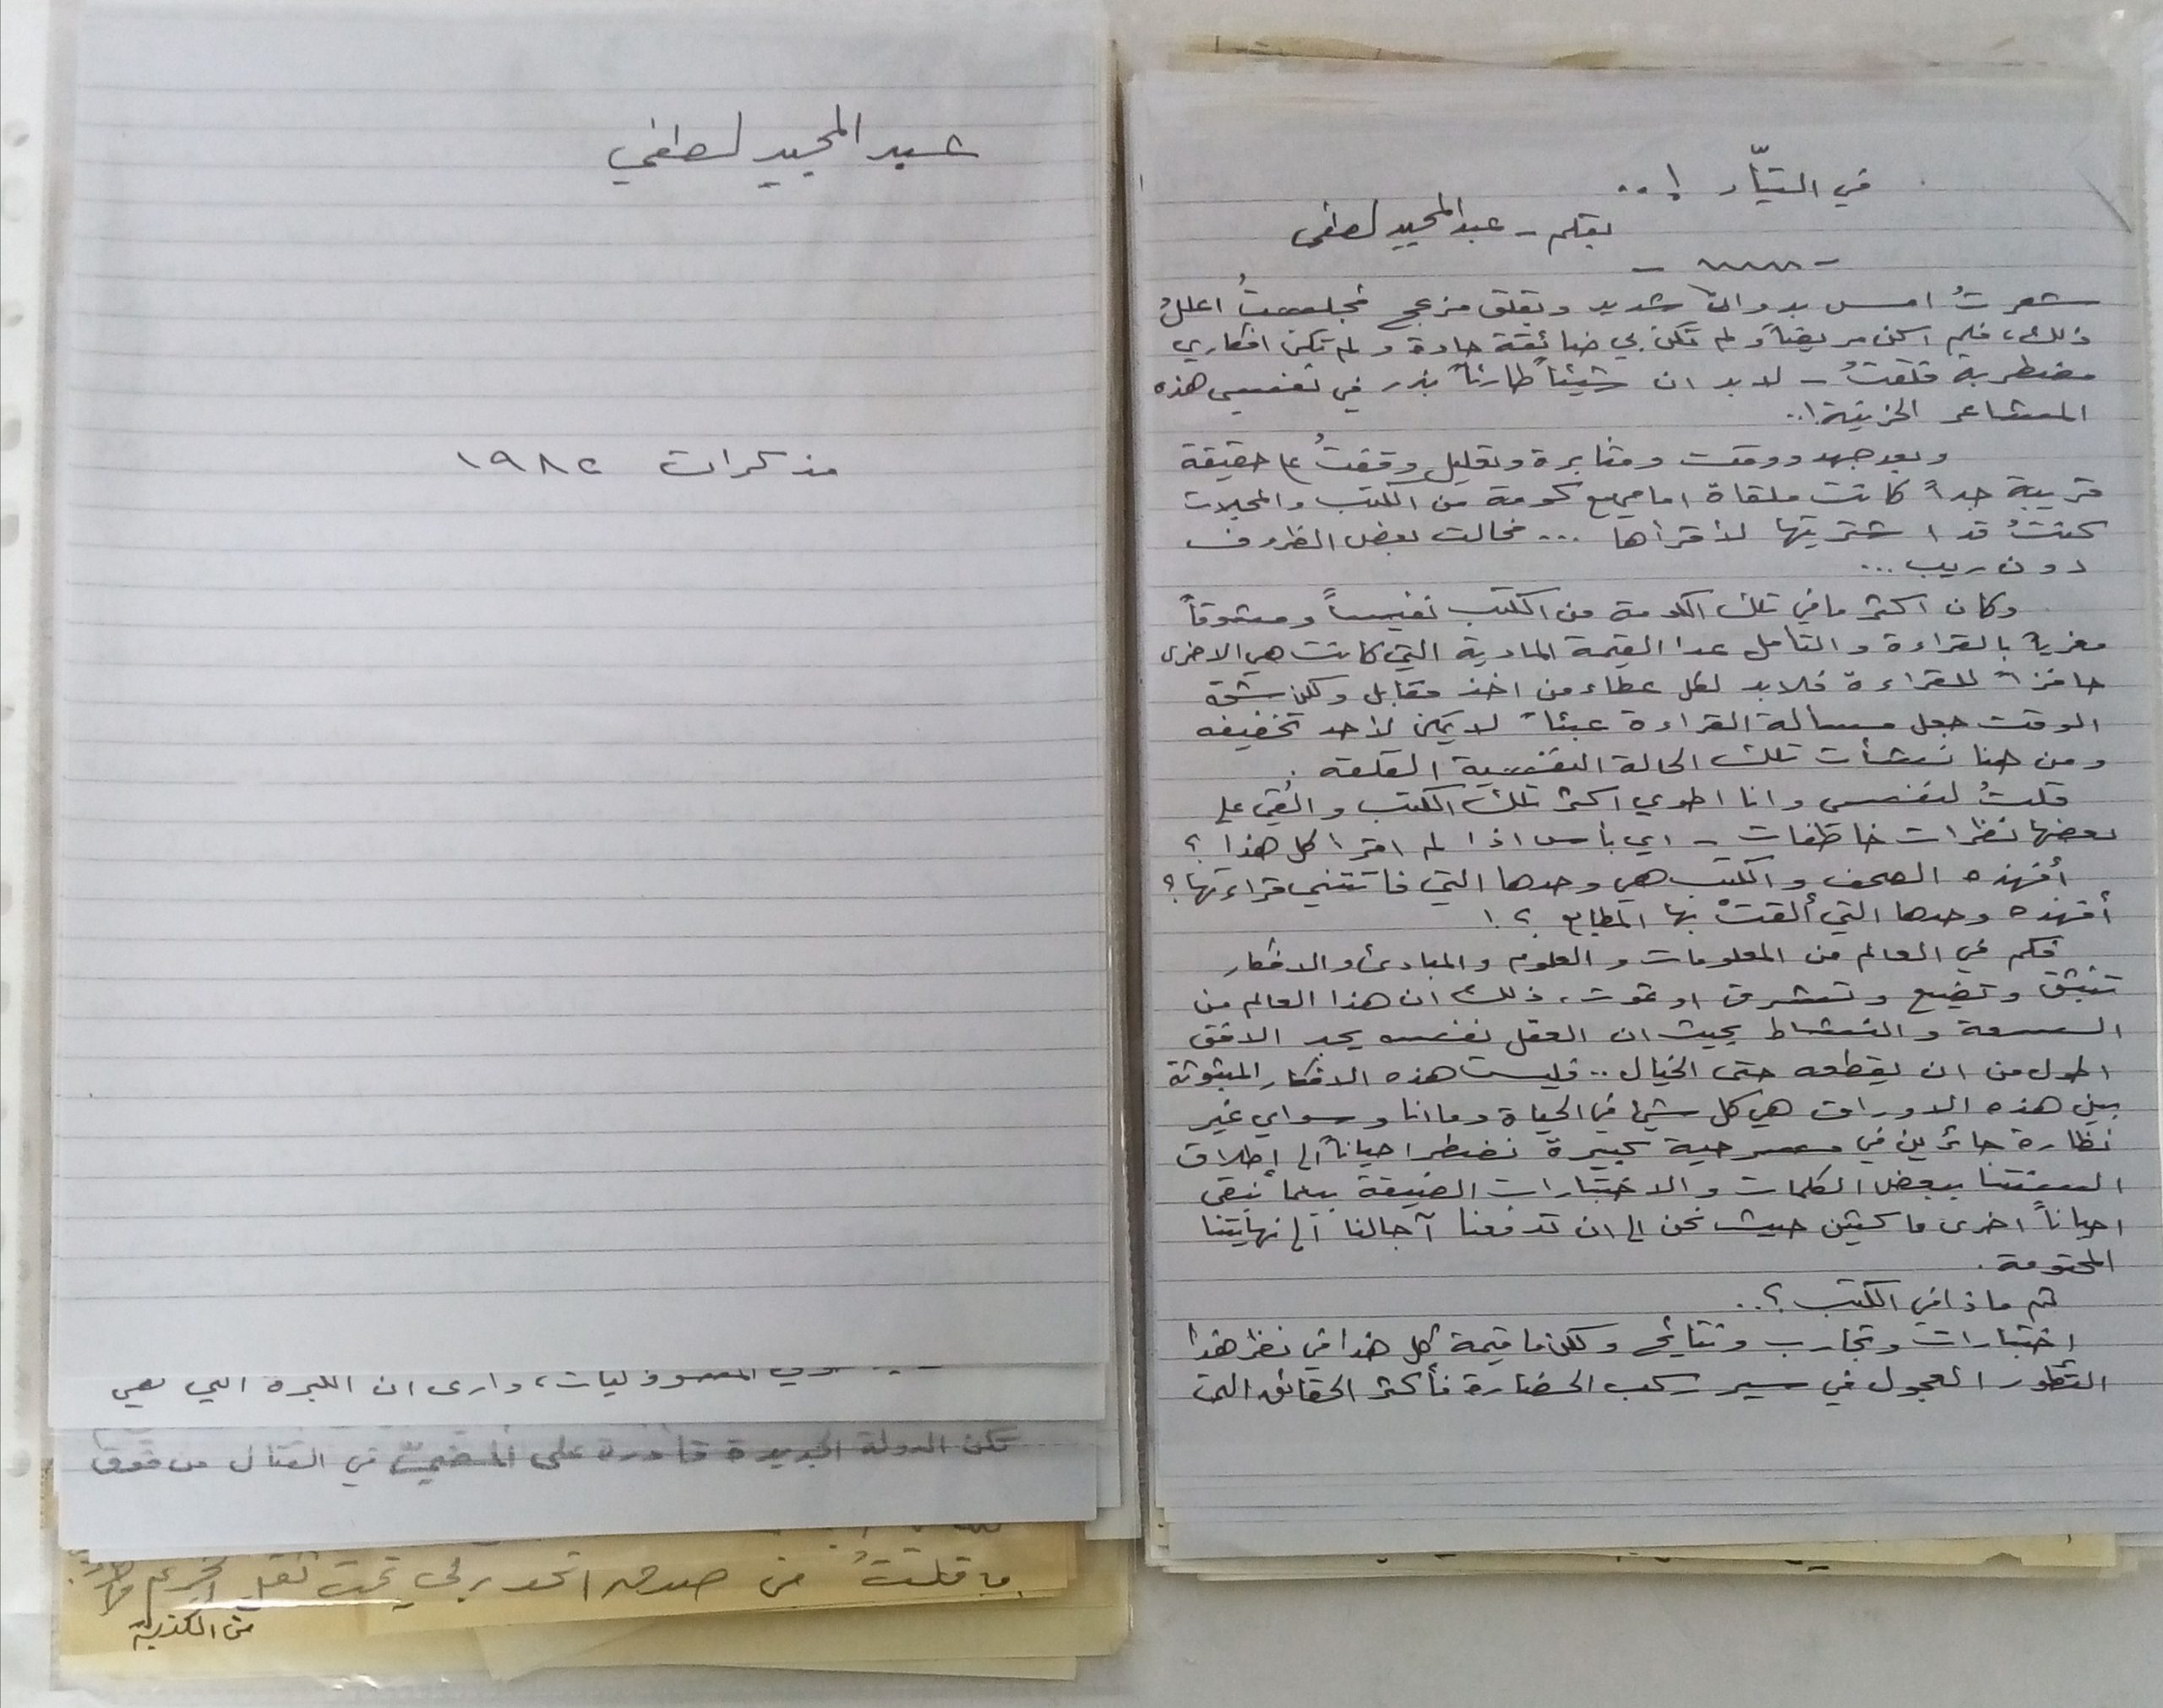 في التيّار !..
بقلم - عبدالمجيد لطفي
شعرتُ امس بدوار شديد وبقلق مزعج فجلستُ اعللُ
ذلك، فلم اكن مريضاً ولم تكن بي ضائقة حادة ولم تكن افكاري
مضطربة فقلتُ - لابد ان شيئاً طارئاً بذر في نفسي هذه
المشاعر الحزينة!..
وبعد جهد ووقت ومثابرة وتعليل وقفتُ على حقيقة
قريبة جداً كانت ملقاة امامي مع كومة من الكتب والمجلات
كنتُ قد اشتريتها لأقرأها ... فحالت بعض الظروف
دون ريب ...
وكان اكثر مافي تلك الكومة من الكتب نفيساً ومشوقاً
مغرياً بالقراءة والتأمل عدا القيمة المادية التي كانت هي الاخرى
حافزاً للقراءة فلابد لكل عطاء من اخذ مقابل ولكن شحة
الوقت جعل مسألة القراءة عبئاً لايمكن لأحد تخفيفه
ومن هنا نشأت تلك الحالة النفسية القلقه .
قلتُ لنفسي وانا اطوي اكثر تلك الكتب وألقي على
بعضها نظرات خاطفات - اي بأس اذا لم اقرا كل هذا ؟
أفهذه الصحف والكتب هي وحدها التي فاتتني قراءتها ؟
أفهذه وحدها التي ألقتْ بها المطابع ؟!
فكم في العالم من المعلومات والعلوم والمبادئ والافكار
تنبثق وتضيع وتشرق او تموت، ذلك ان هذا العالم من
السعة والنشاط بحيث ان العقل نفسه يجد الافق
اطول من ان يقطعه حتى الخيال .. فليست هذه الافكار المبثوثة
بين هذه الاوراق هي كل شيء في الحياة وما انا وسواي غير
نظارة حائرين في مسرحية كبيرة نضطر احياناً الى إطلاق
السنتنا ببعض الكلمات والاختبارات الضيقة بينما نبقى
احياناً اخرى ماكثين حيث نحن الى ان تدفعنا آجالنا الى نهايتنا
المحتومة .
ثم ماذا في الكتب ؟..
اختبارات وتجارب ونتائج ولكن ما قيمة كل هذا في نظر هذا
التطور العجول في سير ركب الحضارة فأكثر الحقائق التي
عبد المجيد لطفي
مذكرات ١٩٨٢
المسؤوليات، وارى ان العبرة التي هي
تكن الدولة الجديدة قادرة على المضيّ في القتال من فوق
ما قلتُ من صدق تحت ثقل
من الكذب